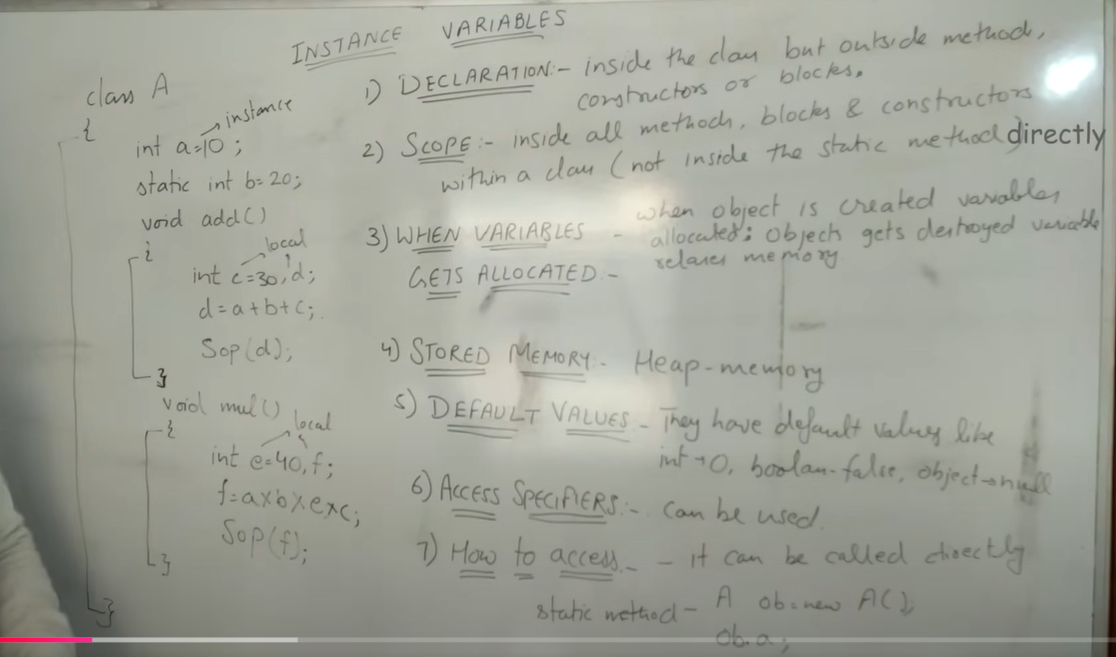 INSTANCE VARIABLES
class A
{
int a=10; → instance
static int b=20;
void add()
{
int c=30, d; → local
d=a+b+c;
Sop(d);
}
void mul()
{
int e=40, f; → local
f=a×b×e×c;
Sop(f);
}
}
1) DECLARATION:- inside the class but outside method,
constructors or blocks.
2) SCOPE:- inside all methods, blocks & constructors
within a class (not inside the static method) directly
3) WHEN VARIABLES GETS ALLOCATED:- when object is created variables
allocated; objects gets destroyed variable
memory
4) STORED MEMORY:- Heap-memory
5) DEFAULT VALUES - They have default values like
int→0, boolan-false, object→null
6) ACCESS SPECIFIERS:- can be used.
7) How to access - - it can be called directly
static method - A ob=new A();
ob.a;